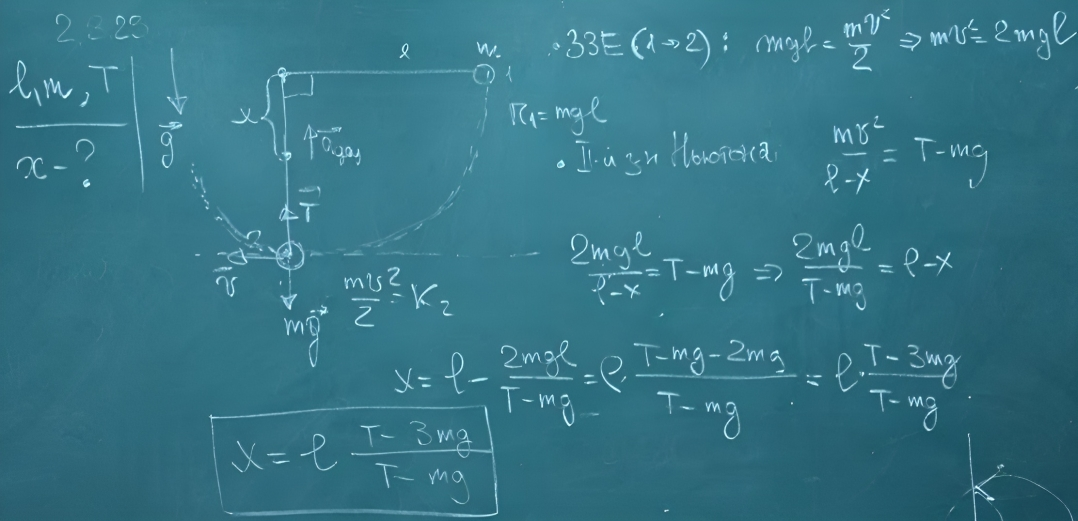 2.3.23
l, m, T
x - ?
g⃗
l
m
1
x
a⃗
T⃗
v⃗
2
mg⃗
mv²/2 = K₂
• ЗЗЕ (1→2): mgl = mv²/2 ⇒ mv² = 2mgl
П₁ = mgl
• II-й зн Ньютона: mv²/(l-x) = T-mg
2mgl/(l-x) = T-mg ⇒ 2mgl/(T-mg) = l-x
x = l - 2mgl/(T-mg) = l · (T-mg-2mg)/(T-mg) = l · (T-3mg)/(T-mg)
x = l (T-3mg)/(T-mg)